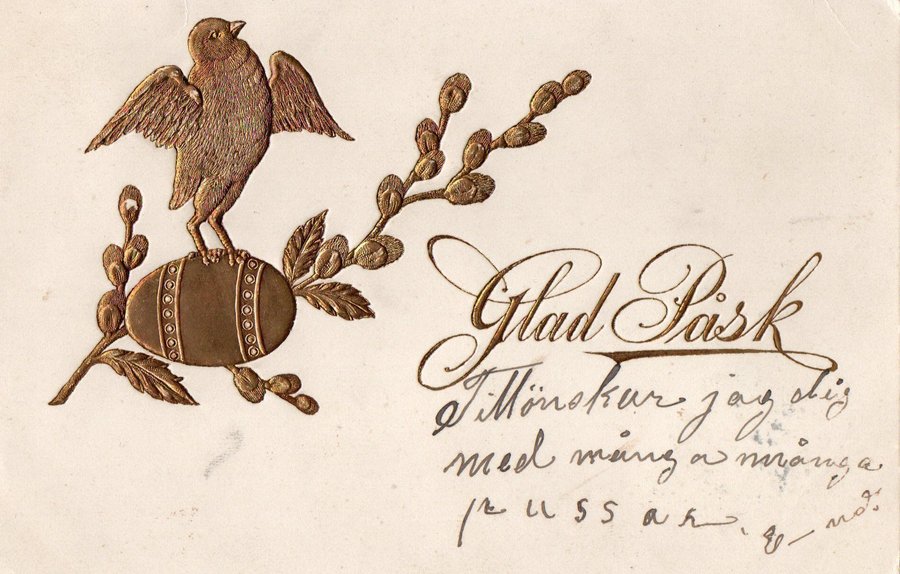 Glad Påsk
Tillönskar jag dig
med många många
pussar.